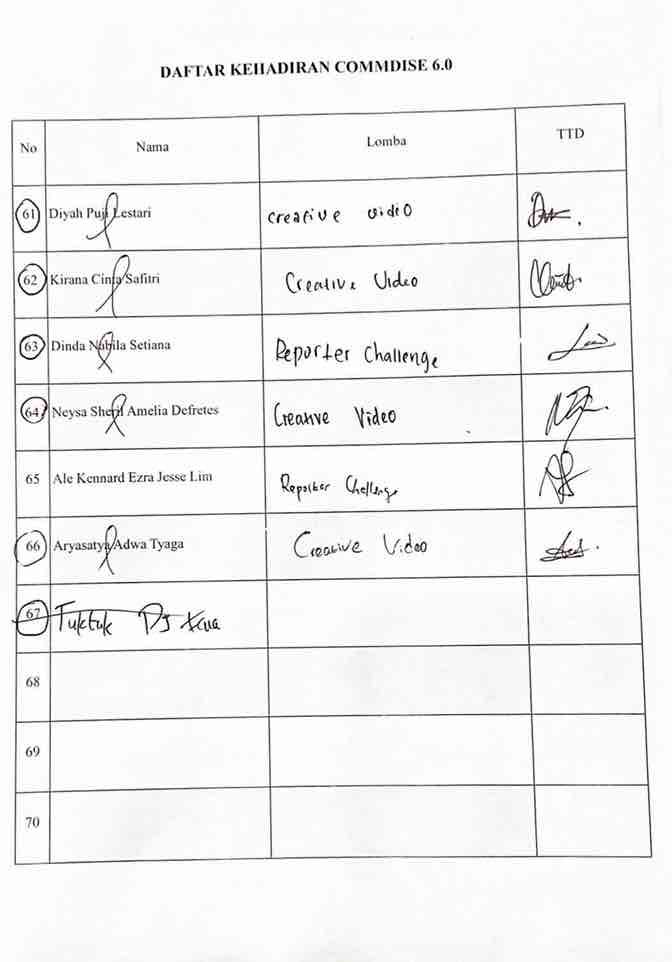 DAFTAR KEHADIRAN COMMDISE 6.0
No Nama Lomba TTD
61 Diyah Puji Lestari creative video
62 Kirana Cinta Safitri Creative Video
63 Dinda Nabila Setiana Reporter Challenge
64 Neysa Sheril Amelia Defretes Creative Video
65 Ale Kennard Ezra Jesse Lim Reporter Challenge
66 Aryasatya Adwa Tyaga Creative Video
67 Tuktuk
68
69
70